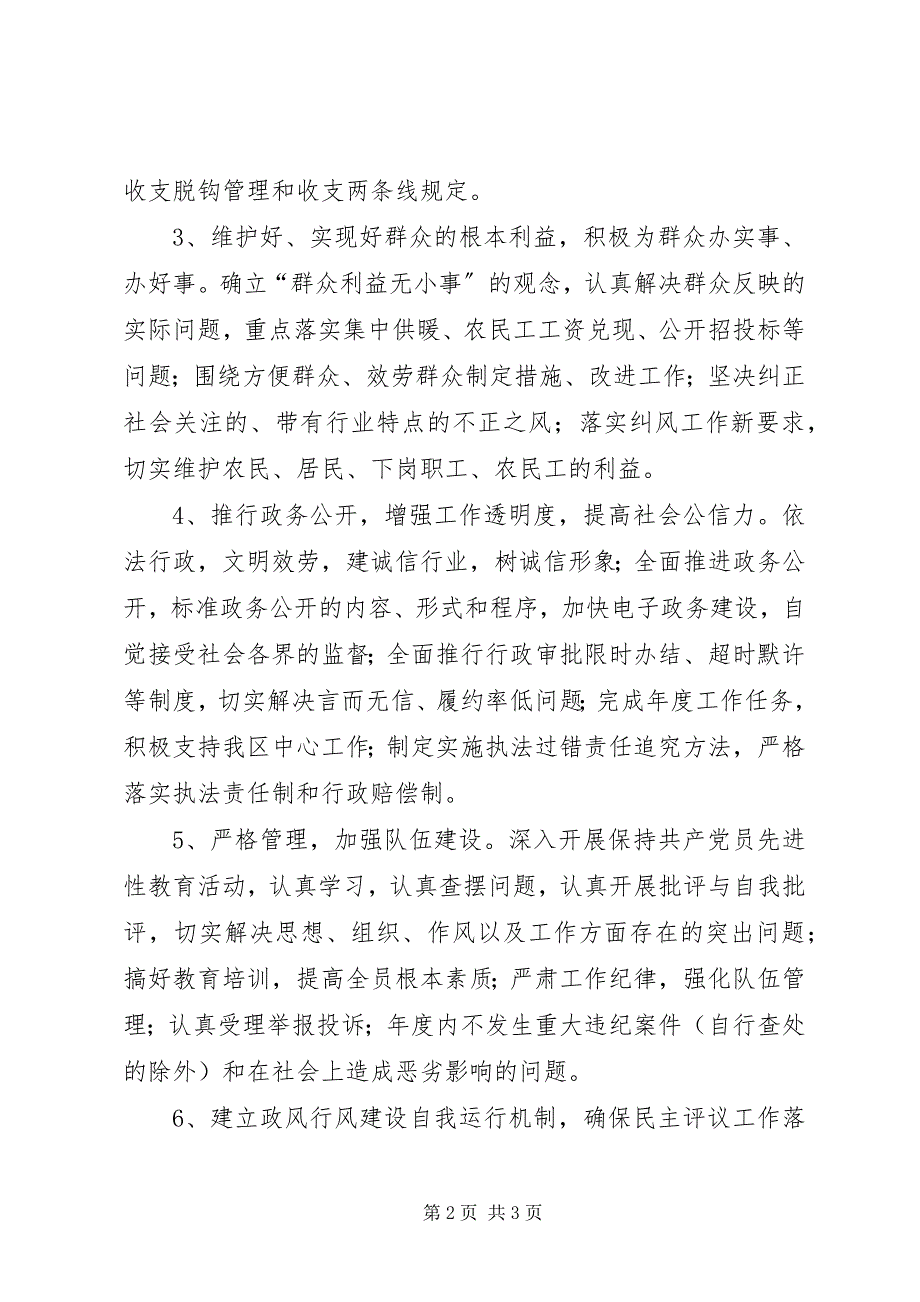 收支脱钩管理和收支两条线规定。
3、维护好、实现好群众的根本利益，积极为群众办实事、
办好事。确立“群众利益无小事〞的观念，认真解决群众反映的
实际问题，重点落实集中供暖、农民工工资兑现、公开招投标等
问题；围绕方便群众、效劳群众制定措施、改进工作；坚决纠正
社会关注的、带有行业特点的不正之风；落实纠风工作新要求，
切实维护农民、居民、下岗职工、农民工的利益。
4、推行政务公开，增强工作透明度，提高社会公信力。依
法行政，文明效劳，建诚信行业，树诚信形象；全面推进政务公
开，标准政务公开的内容、形式和程序，加快电子政务建设，自
觉接受社会各界的监督；全面推行行政审批限时办结、超时默许
等制度，切实解决言而无信、履约率低问题；完成年度工作任务，
积极支持我区中心工作；制定实施执法过错责任追究方法，严格
落实执法责任制和行政赔偿制。
5、严格管理，加强队伍建设。深入开展保持共产党员先进
性教育活动，认真学习，认真查摆问题，认真开展批评与自我批
评，切实解决思想、组织、作风以及工作方面存在的突出问题；
搞好教育培训，提高全员根本素质；严肃工作纪律，强化队伍管
理；认真受理举报投诉；年度内不发生重大违纪案件（自行查处
的除外）和在社会上造成恶劣影响的问题。
6、建立政风行风建设自我运行机制，确保民主评议工作落
第 2 页 共 3 页